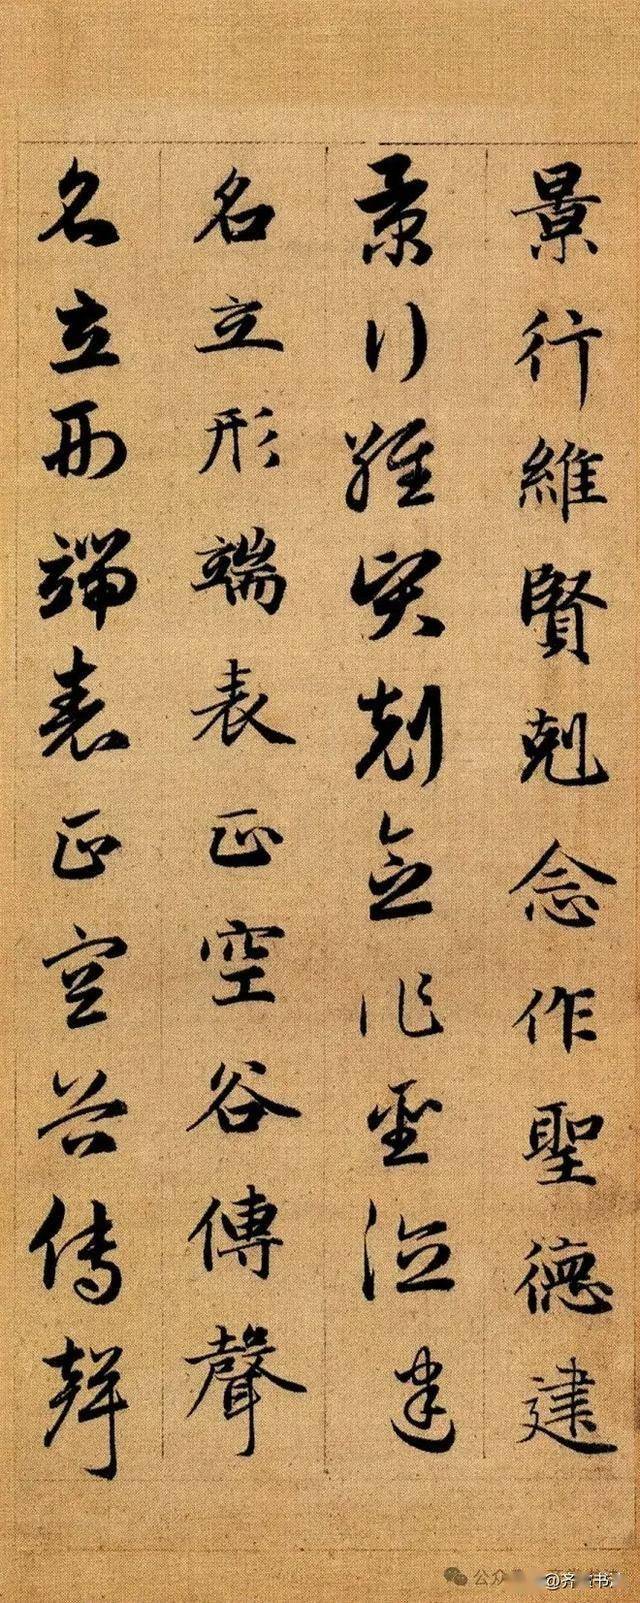 景行維賢剋念作聖德建
景行維賢剋念作聖德建
名立形端表正空谷傳聲
名立形端表正空谷傳聲
公众
@齐 书